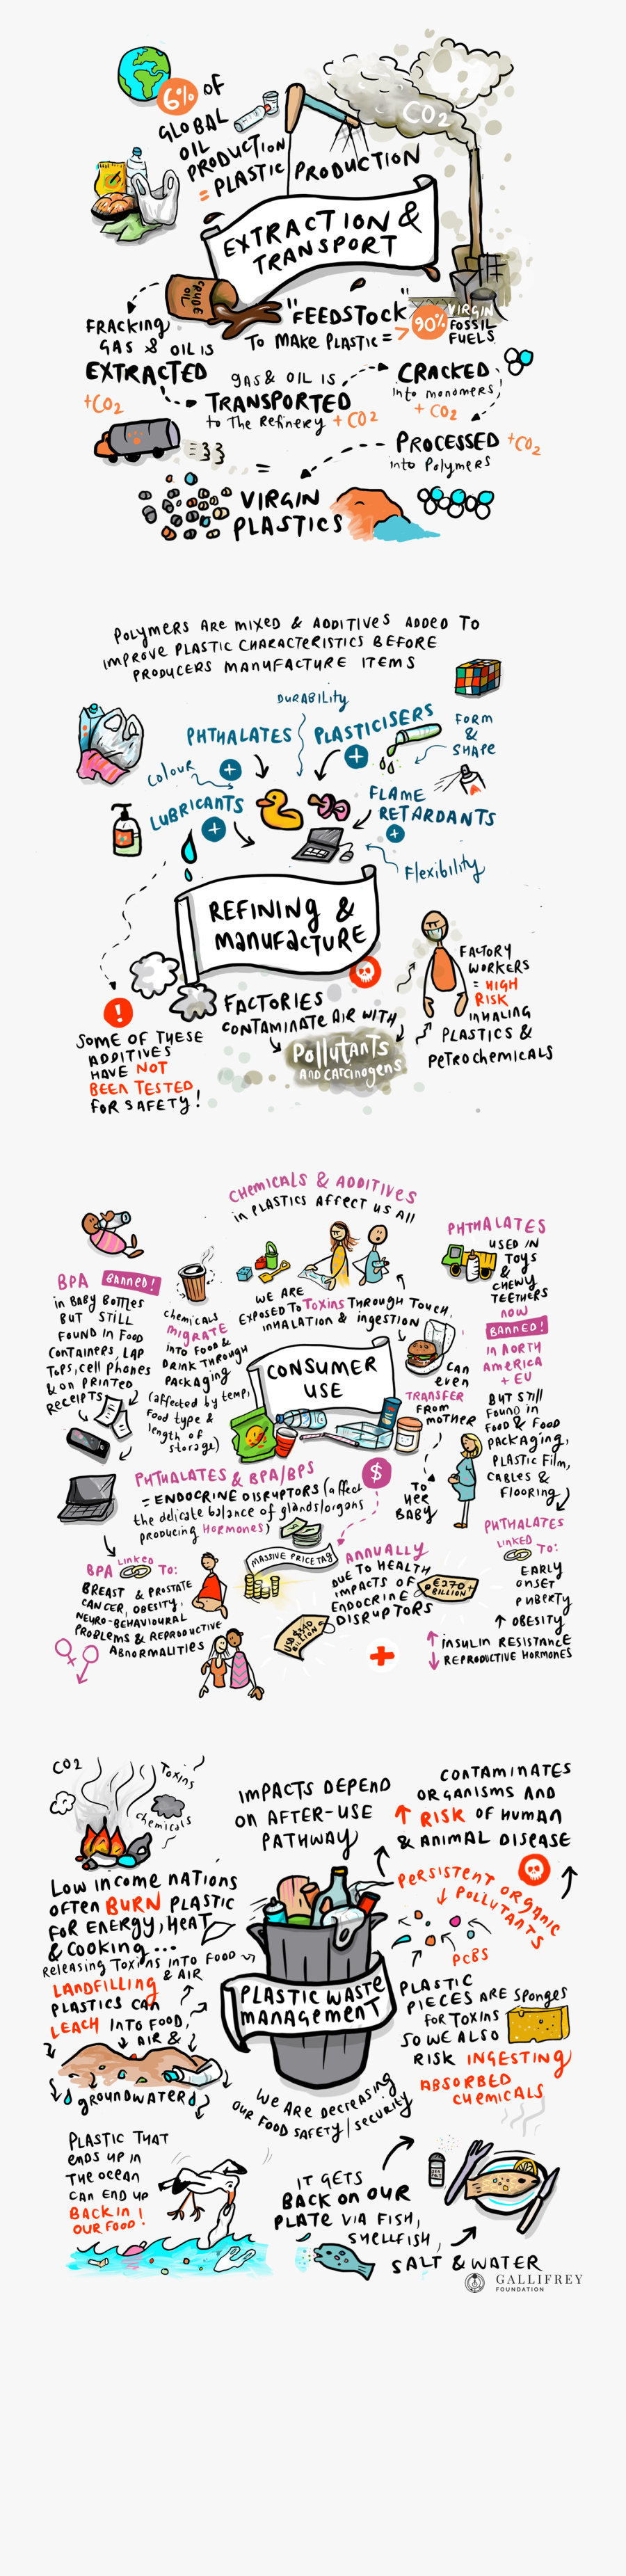 6% OF
GLOBAL
OIL
PRODUCTION
= PLASTIC PRODUCTION
CO2
EXTRACTION &
TRANSPORT
CRUDE
OIL
"FEEDSTOCK"
TO MAKE PLASTIC = > 90% VIRGIN
FOSSIL
FUELS
FRACKING
GAS & OIL IS
EXTRACTED
+CO2
GAS & OIL IS
TRANSPORTED
to The Refinery + CO2
CRACKED
into monomers
+ CO2
PROCESSED +CO2
into Polymers
=
VIRGIN
PLASTICS
POLYMERS ARE MIXED & ADDITIVES ADDED TO
IMPROVE PLASTIC CHARACTERISTICS BEFORE
PRODUCERS MANUFACTURE ITEMS
DURABILITY
PHTHALATES
PLASTICISERS
FORM
&
SHAPE
Colour
LUBRICANTS
FLAME
RETARDANTS
Flexibility
REFINING &
MANUFACTURE
!
SOME OF THESE
ADDITIVES
HAVE NOT
BEEN TESTED
FOR SAFETY!
FACTORIES
CONTAMINATE AIR WITH
Pollutants
AND CARCINOGENS
FACTORY
WORKERS
= HIGH
RISK
INHALING
PLASTICS &
PETROCHEMICALS
CHEMICALS & ADDITIVES
in PLASTICS AFFECT US All
BPA BANNED!
in BABY BOTTLES
BUT STILL
FOUND IN FOOD
CONTAINERS, LAP
TOPS, CELL PHONES
& ON PRINTED
RECEIPTS
chemicals
MIGRATE
INTO FOOD &
DRINK THROUGH
PACKAGING
(affected by temp,
food type &
length of
storage)
WE ARE
EXPOSED TO TOXINS THROUGH TOUCH,
INHALATION & INGESTION
CONSUMER
USE
CAN
even
TRANSFER
FROM
MOTHER
TO
HER
BABY
PHTHALATES
USED IN
TOYS
&
CHEWY
TEETHERS
NOW
BANNED!
IN NORTH
AMERICA
+ EU
BUT STILL
FOUND IN
FOOD & FOOD
PACKAGING,
PLASTIC FILM,
CABLES &
FLOORING
PHTHALATES & BPA/BPS
= ENDOCRINE DISRUPTORS (affect
the delicate balance of glands/organs
producing HORMONES)
$
MASSIVE PRICE TAG
ANNUALLY
DUE TO HEALTH
IMPACTS OF
ENDOCRINE
DISRUPTORS
€270+
BILLION
USD $340
BILLION
BPA LINKED TO:
BREAST & PROSTATE
CANCER, OBESITY,
NEURO-BEHAVIOURAL
PROBLEMS & REPRODUCTIVE
ABNORMALITIES
PHTHALATES
LINKED TO:
EARLY
ONSET
PUBERTY
↑ OBESITY
↑ INSULIN RESISTANCE
↓ REPRODUCTIVE HORMONES
CO2
Toxins
chemicals
LOW INCOME NATIONS
OFTEN BURN PLASTIC
FOR ENERGY, HEAT
& COOKING...
Releasing Toxins INTO FOOD
& AIR
LANDFILLING
PLASTICS CAN
LEACH INTO FOOD,
AIR &
GROUNDWATER
IMPACTS DEPEND
ON AFTER-USE
PATHWAY
CONTAMINATES
ORGANISMS AND
↑ RISK OF HUMAN
& ANIMAL DISEASE
PERSISTENT ORGANIC
POLLUTANTS
PCBS
PLASTIC WASTE
MANAGEMENT
PLASTIC
PIECES ARE SPONGES
FOR TOXINS
SO WE ALSO
RISK INGESTING
ABSORBED
CHEMICALS
WE ARE DECREASING
OUR FOOD SAFETY/SECURITY
PLASTIC THAT
ENDS UP IN
THE OCEAN
CAN END UP
BACK IN
OUR FOOD!
IT GETS
BACK ON OUR
PLATE VIA FISH,
SHELLFISH,
SALT & WATER
GALLIFREY
FOUNDATION